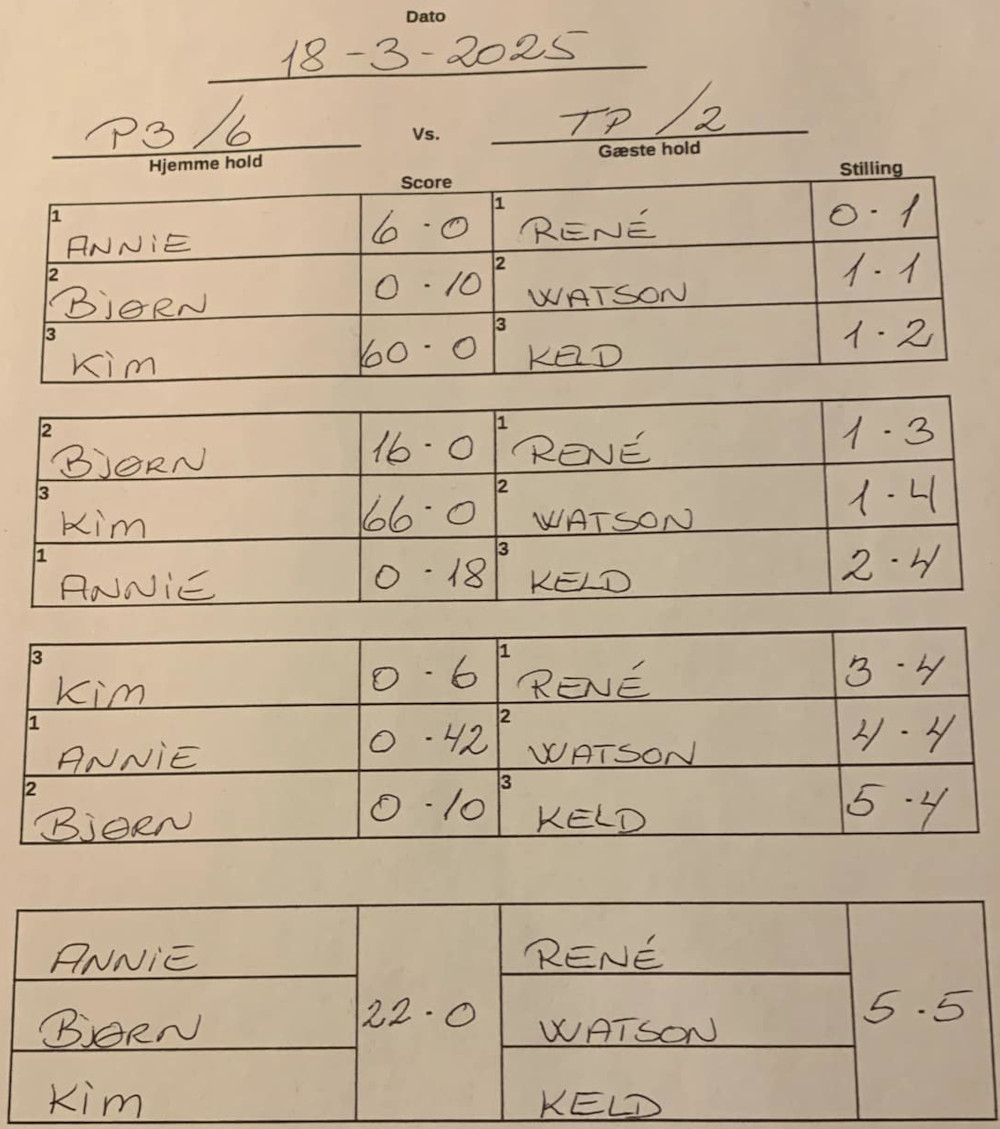 Dato
18-3-2025
P3/6 Vs. TP/2
Hjemme hold Gæste hold
Score Stilling
1 ANNIE 6-0 1 RENÉ 0-1
2 BJØRN 0-10 2 WATSON 1-1
3 KIM 60-0 3 KELD 1-2
2 BJØRN 16-0 1 RENÉ 1-3
3 KIM 66-0 2 WATSON 1-4
1 ANNIE 0-18 3 KELD 2-4
3 KIM 0-6 1 RENÉ 3-4
1 ANNIE 0-42 2 WATSON 4-4
2 BJØRN 0-10 3 KELD 5-4
ANNIE RENÉ
BJØRN 22-0 WATSON 5-5
KIM KELD